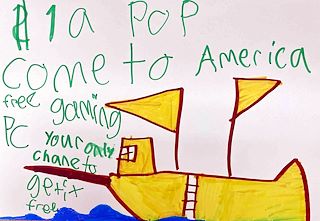 $1 a POP
come to America
free gaming
PC your only
chane to
get it
free